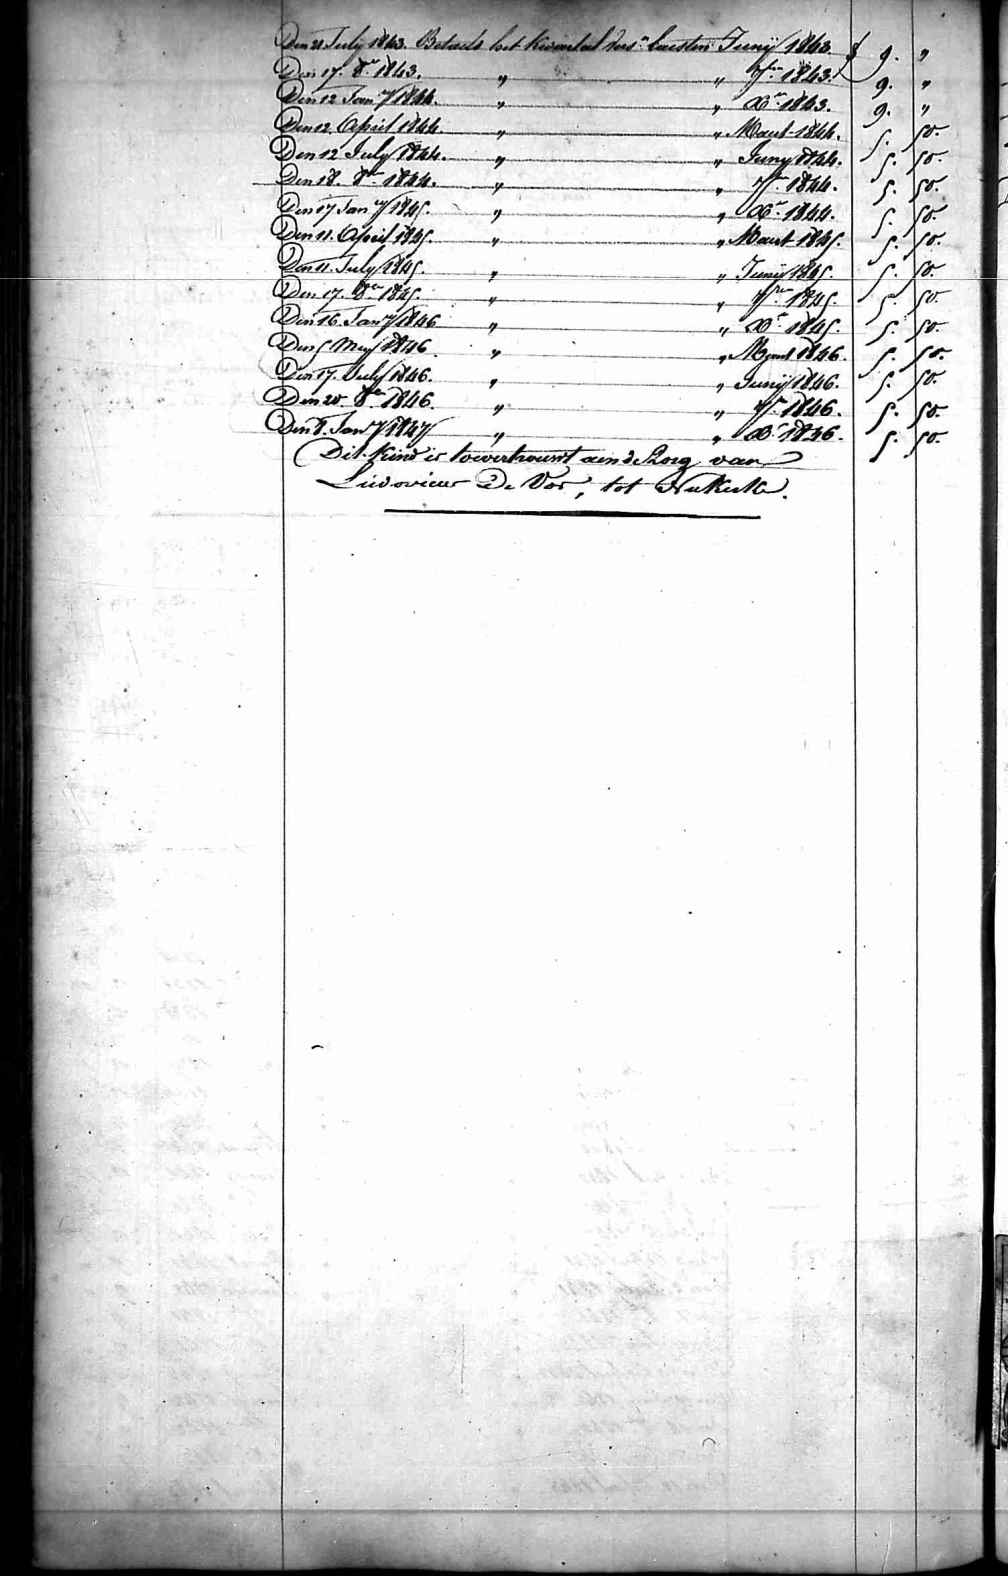 Den 21 July 1843. Betaeld het Kwartael vers.n laesten Juny 1843. f 9. "
Den 17. 8.r 1843. " " 7.re 1843. 9. "
Den 12 Jan.y 1844. " " X.r 1843. 9. "
Den 12 April 1844 " " Maert 1844. 5. 50.
Den 12 July 1844. " " Juny 1844. 5. 50.
Den 18. 8.r 1844. " " 7.r 1844. 5. 50.
Den 17 Jan.y 1845. " " X.r 1844. 5. 50.
Den 11. April 1845. " " Maert 1845. 5. 50.
Den 11. July 1845. " " Juny 1845. 5. 50.
Den 17. 8.re 1845. " " 7.re 1845. 5. 50.
Den 16. Jan.y 1846 " " X.r 1845. 5. 50.
Den 5 Mey 1846. " " Maert 1846. 5. 50.
Den 17. July 1846. " " Juny 1846. 5. 50.
Den 20. 8.re 1846. " " 7.r 1846. 5. 50.
Den 8. Jan.y 1847 " " X.r 1846. 5. 50.
Dit Kind is toevertrouwt aen de Zorg van
Ludovicus De Vos, tot Nukerke.